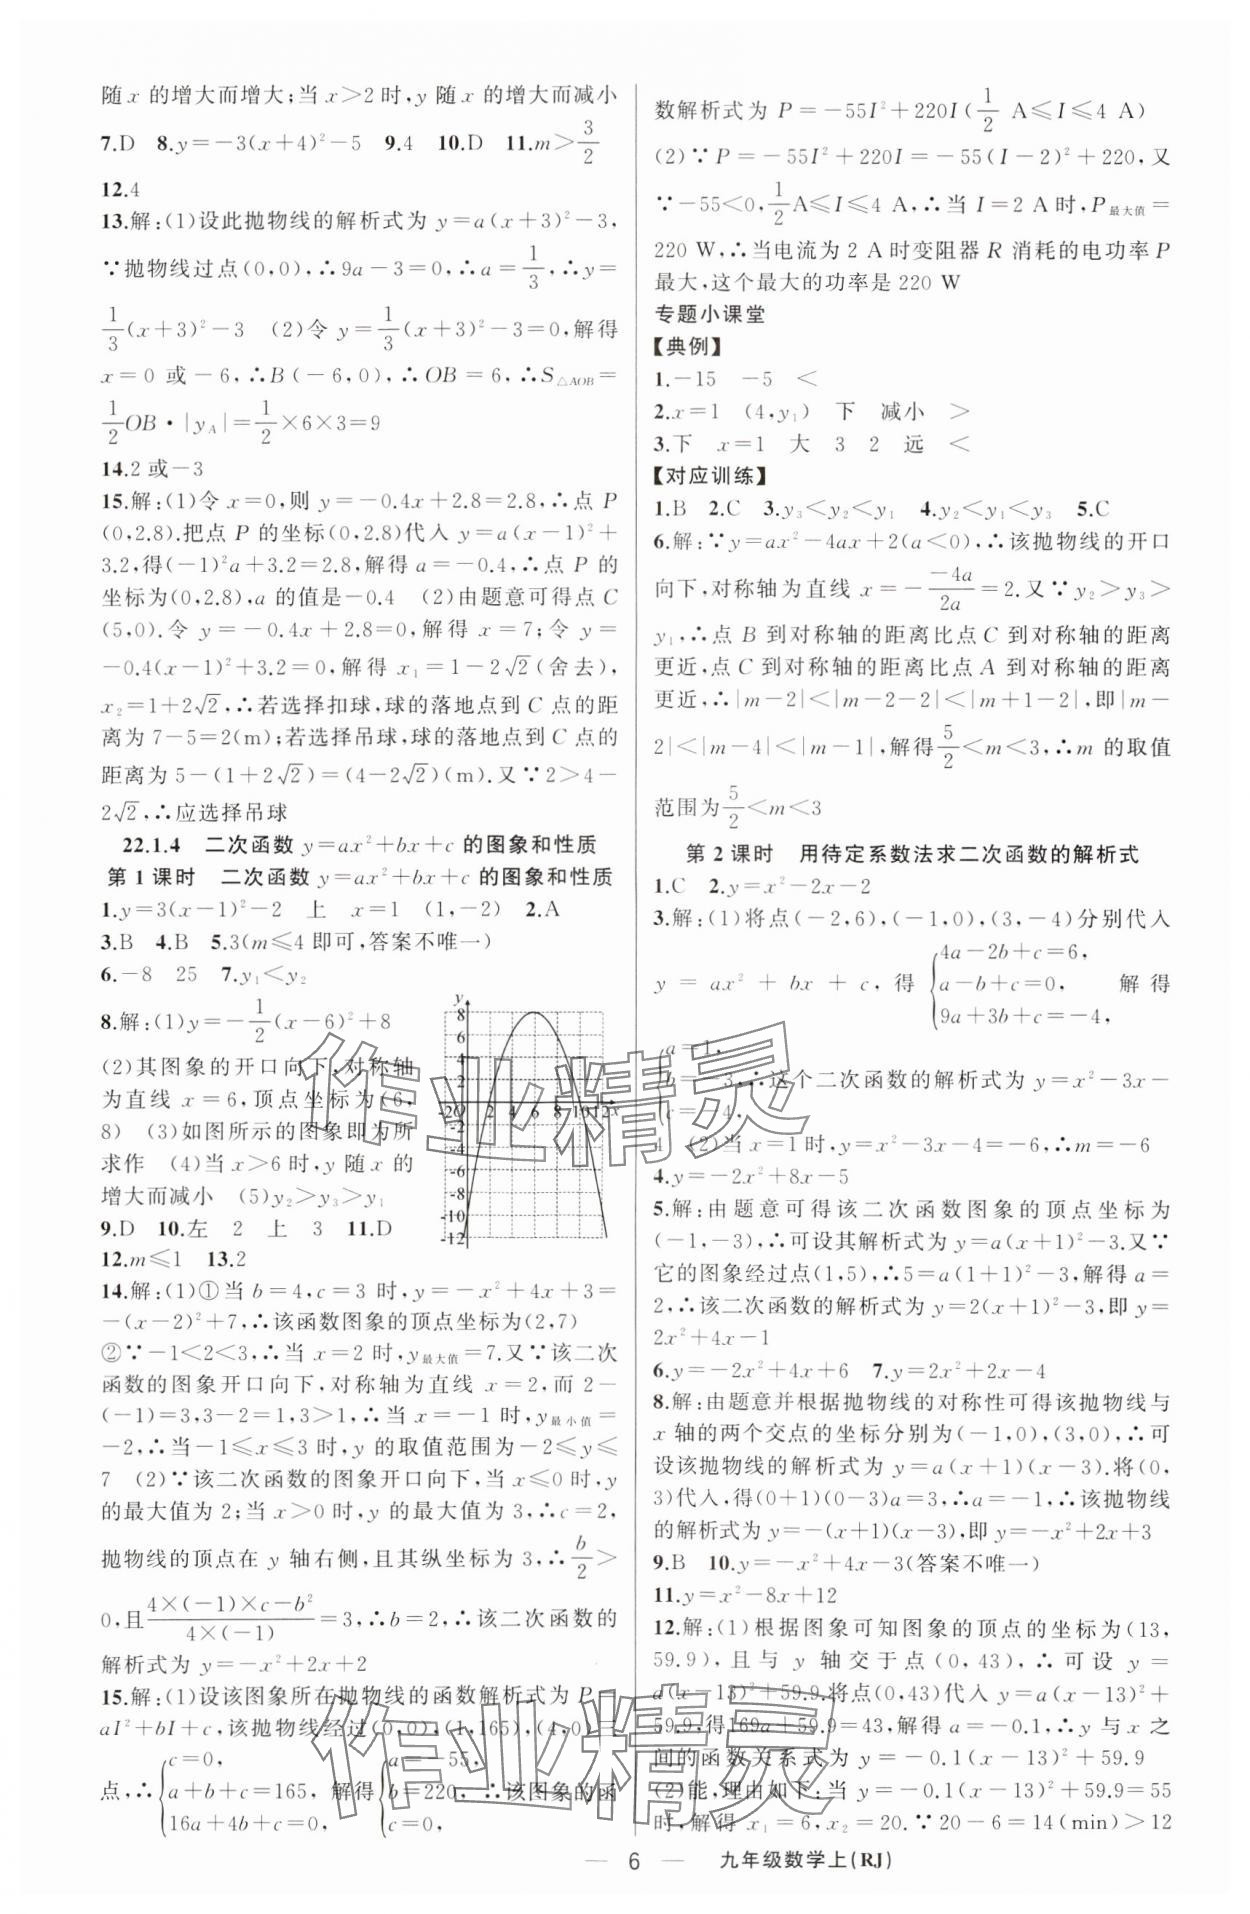 随 x 的增大而增大;当 x>2 时,y 随 x 的增大而减小
7.D 8.y=-3(x+4)²-5 9.4 10.D 11.m>3/2
12.4
13.解:(1)设此抛物线的解析式为 y=a(x+3)²-3,
∵抛物线过点(0,0),∴9a-3=0,∴a=1/3,∴y=
1/3(x+3)²-3 (2)令 y=1/3(x+3)²-3=0,解得
x=0 或-6,∴B(-6,0),∴OB=6,∴S△AOB=
1/2OB·|y_A|=1/2×6×3=9
14.2或-3
15.解:(1)令 x=0,则 y=-0.4x+2.8=2.8,∴点 P
(0,2.8).把点 P 的坐标(0,2.8)代入 y=a(x-1)²+
3.2,得(-1)²a+3.2=2.8,解得 a=-0.4,∴点 P 的
坐标为(0,2.8),a 的值是-0.4 (2)由题意可得点 C
(5,0).令 y=-0.4x+2.8=0,解得 x=7;令 y=
-0.4(x-1)²+3.2=0,解得 x₁=1-2√2(舍去),
x₂=1+2√2,∴若选择扣球,球的落地点到 C 点的距
离为 7-5=2(m);若选择吊球,球的落地点到 C 点的
距离为 5-(1+2√2)=(4-2√2)(m).又∵2>4-
2√2,∴应选择吊球
22.1.4 二次函数 y=ax²+bx+c 的图象和性质
第 1 课时 二次函数 y=ax²+bx+c 的图象和性质
1.y=3(x-1)²-2 上 x=1 (1,-2) 2.A
3.B 4.B 5.3(m≤4 即可,答案不唯一)
6.-8 25 7.y₁<y₂
8.解:(1)y=-1/2(x-6)²+8
(2)其图象的开口向下,对称轴
为直线 x=6,顶点坐标为(6,
8) (3)如图所示的图象即为所
求作 (4)当 x>6 时,y 随 x 的
增大而减小 (5)y₂>y₃>y₁
9.D 10.左 2 上 3 11.D
12.m≤1 13.2
14.解:(1)①当 b=4,c=3 时,y=-x²+4x+3=
-(x-2)²+7,∴该函数图象的顶点坐标为(2,7)
②∵-1<2<3,∴当 x=2 时,y最大值=7.又∵该二次
函数的图象开口向下,对称轴为直线 x=2,而 2-
(-1)=3,3-2=1,3>1,∴当 x=-1 时,y最小值=
-2,∴当-1≤x≤3 时,y 的取值范围为-2≤y≤
7 (2)∵该二次函数的图象开口向下,当 x≤0 时,y
的最大值为 2;当 x>0 时,y 的最大值为 3,∴c=2,
抛物线的顶点在 y 轴右侧,且其纵坐标为 3,∴b/2>
0,且(4×(-1)×c-b²)/(4×(-1))=3,∴b=2,∴该二次函数的
解析式为 y=-x²+2x+2
15.解:(1)设该图象所在抛物线的函数解析式为 P=
aI²+bI+c,该抛物线经过(0,0),(1,165),(4,0)三
点,∴{c=0, a+b+c=165, 16a+4b+c=0, 解得{a=-55, b=220, c=0, ∴该图象的函
数解析式为 P=-55I²+220I(1/2 A≤I≤4 A)
(2)∵P=-55I²+220I=-55(I-2)²+220,又
∵-55<0,1/2A≤I≤4 A,∴当 I=2 A时,P最大值=
220 W,∴当电流为 2 A时变阻器 R 消耗的电功率 P
最大,这个最大的功率是 220 W
专题小课堂
【典例】
1.-15 -5 <
2.x=1 (4,y₁) 下 减小 >
3.下 x=1 大 3 2 远 <
【对应训练】
1.B 2.C 3.y₃<y₂<y₁ 4.y₂<y₁<y₃ 5.C
6.解:∵y=ax²-4ax+2(a<0),∴该抛物线的开口
向下,对称轴为直线 x=-(-4a)/(2a)=2.又∵y₂>y₃>
y₁,∴点 B 到对称轴的距离比点 C 到对称轴的距离
更近,点 C 到对称轴的距离比点 A 到对称轴的距离
更近,∴|m-2|<|m-2-2|<|m+1-2|,即|m-
2|<|m-4|<|m-1|,解得5/2<m<3,∴m 的取值
范围为5/2<m<3
第 2 课时 用待定系数法求二次函数的解析式
1.C 2.y=x²-2x-2
3.解:(1)将点(-2,6),(-1,0),(3,-4)分别代入
y=ax²+bx+c,得{4a-2b+c=6, a-b+c=0, 9a+3b+c=-4, 解得
{a=1, b=-3, c=-4, ∴这个二次函数的解析式为 y=x²-3x-
4 (2)当 x=1时,y=x²-3x-4=-6,∴m=-6
4.y=-2x²+8x-5
5.解:由题意可得该二次函数图象的顶点坐标为
(-1,-3),∴可设其解析式为 y=a(x+1)²-3.又∵
它的图象经过点(1,5),∴5=a(1+1)²-3,解得 a=
2,∴该二次函数的解析式为 y=2(x+1)²-3,即 y=
2x²+4x-1
6.y=-2x²+4x+6 7.y=2x²+2x-4
8.解:由题意并根据抛物线的对称性可得该抛物线与
x 轴的两个交点的坐标分别为(-1,0),(3,0),∴可
设该抛物线的解析式为 y=a(x+1)(x-3).将(0,
3)代入,得(0+1)(0-3)a=3,∴a=-1,∴该抛物线
的解析式为 y=-(x+1)(x-3),即 y=-x²+2x+3
9.B 10.y=-x²+4x-3(答案不唯一)
11.y=x²-8x+12
12.解:(1)根据图象可知图象的顶点的坐标为(13,
59.9),且与 y 轴交于点(0,43),∴可设 y=
a(x-13)²+59.9.将点(0,43)代入 y=a(x-13)²+
59.9,得169a+59.9=43,解得 a=-0.1,∴y 与 x 之
间的函数关系式为 y=-0.1(x-13)²+59.9
(2)能,理由如下:当 -0.1(x-13)²+59.9=55
时,解得 x₁=6,x₂=20.∵20-6=14(min)>12
y
8
6
4
2
-2 0 2 4 6 8 10 12 x
-2
-4
-6
-8
-10
-12
作业精灵
作业精灵
— 6 — 九年级数学上(RJ)